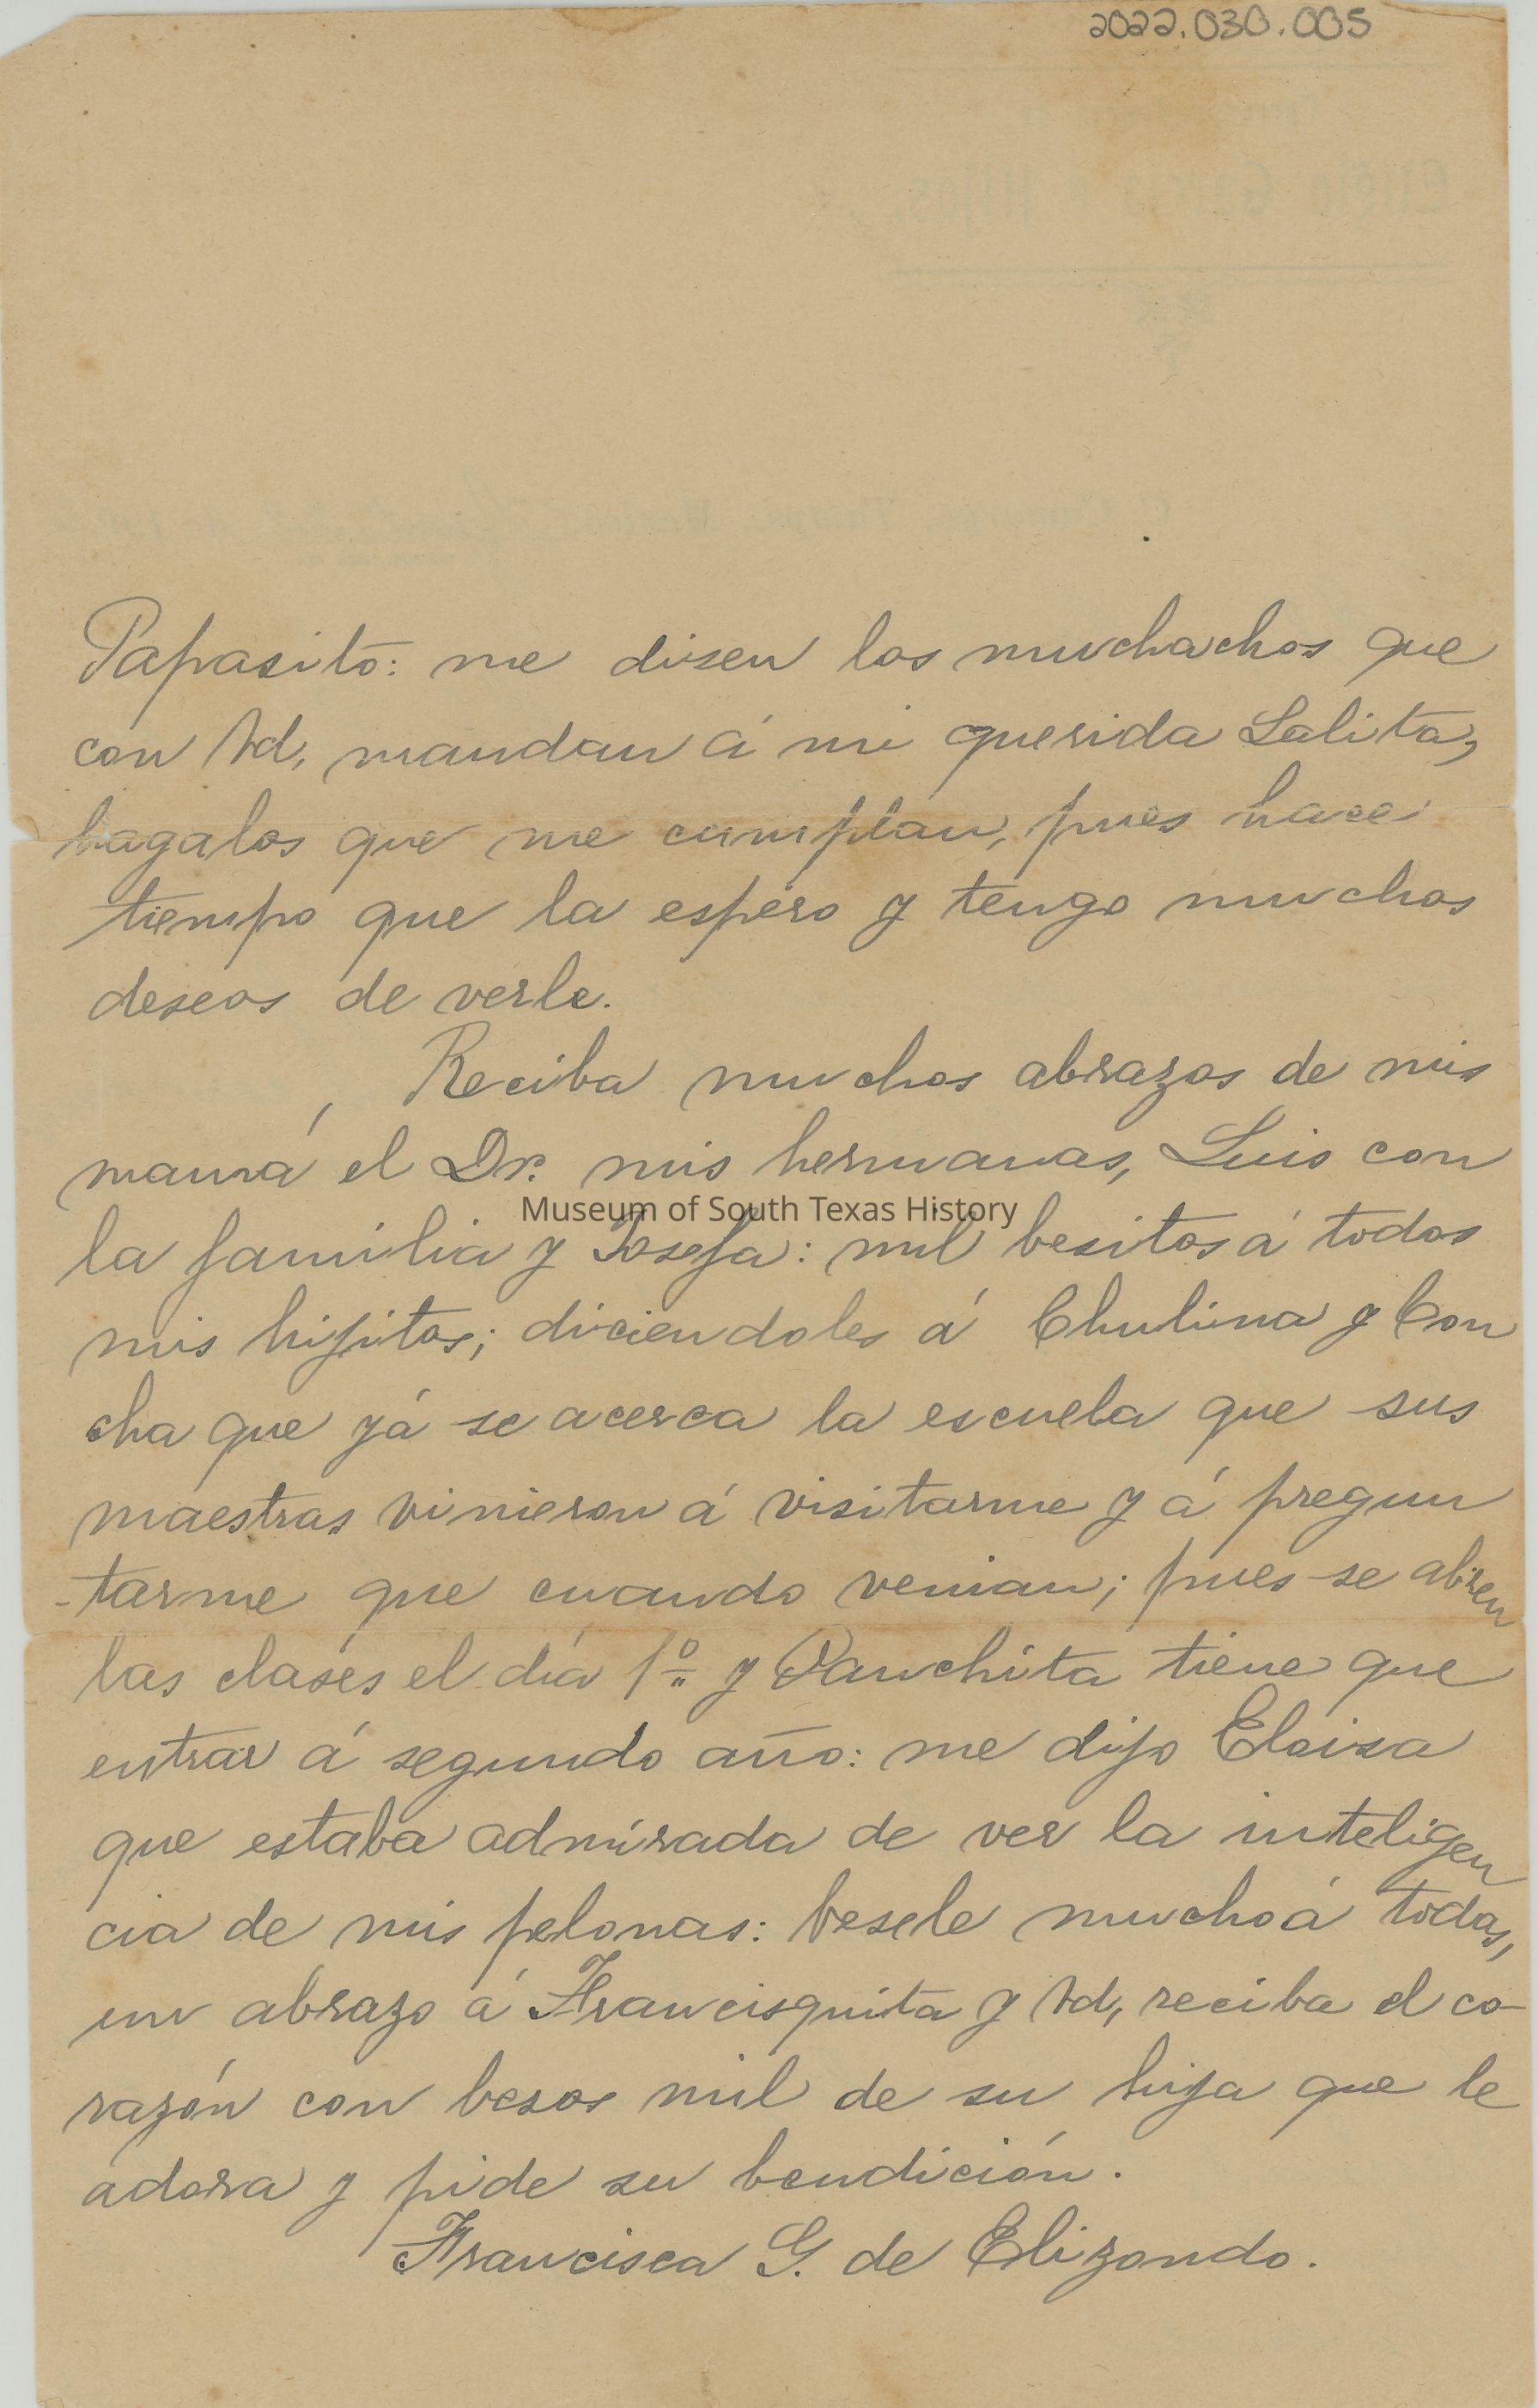 2022.030.005
Papasito: me disen los muchachos que
con Vd, mandan á mi querida Lalita,
hagalos que me cumplan, pues hace
tiempo que la espero y tengo muchos
deseos de verle.
Reciba muchos abrazos de mis
mamá el Dr. mis hermanas, Luis con
Museum of South Texas History
la familia y Josefa: mil besitos á todos
mis hijitos; diciendoles á Chulina y Con
cha que yá se acerca la escuela que sus
maestras vinieron á visitarme y á pregun
-tarme que cuando venian; pues se abren
las clases el día 1º y Panchita tiene que
entrar á segundo año: me dijo Eloisa
que estaba admirada de ver la inteligen
cia de mis pelonas: besele mucho á todas,
un abrazo á Francisquita y Vd, reciba el co-
razón con besos mil de su hija que le
adora y pide su bendición.
Francisca G. de Elizondo.